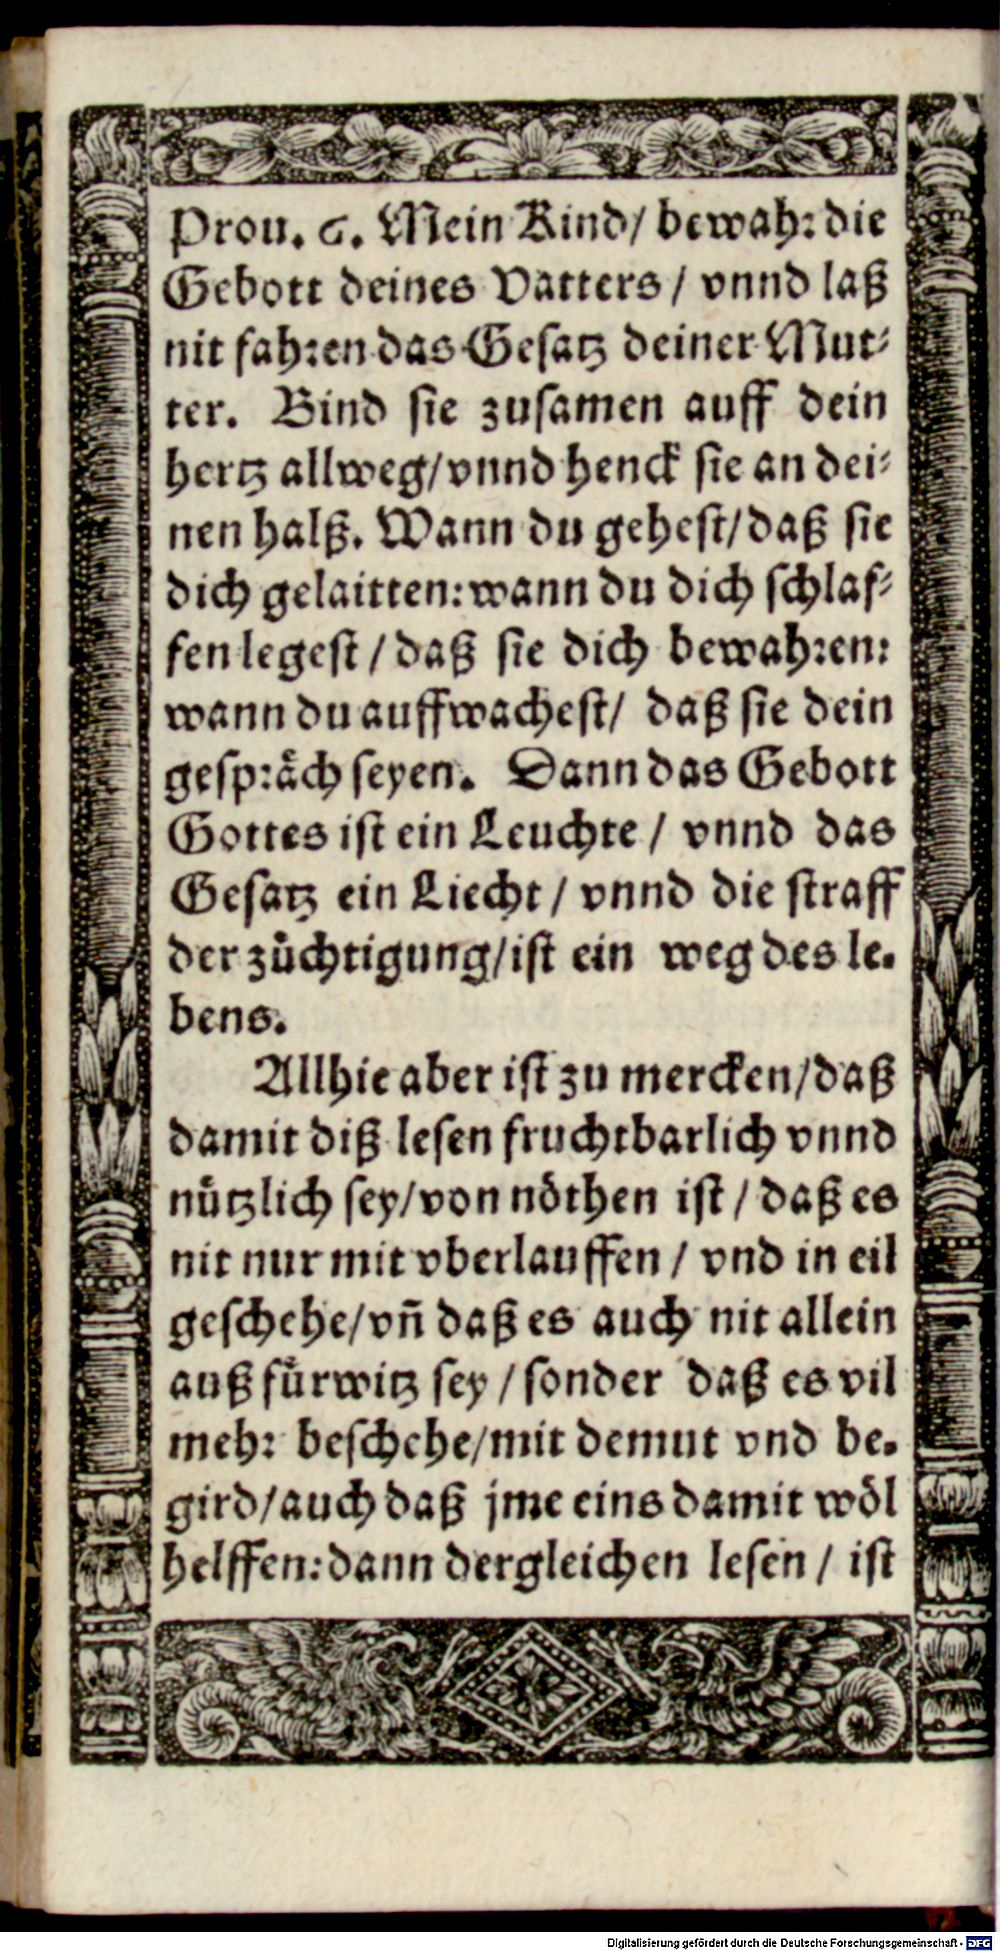 Prou. 6. Mein Kind/ bewahr die
Gebott deines Vatters / vnnd laß
nit fahren das Gesatz deiner Mut⸗
ter. Bind sie zusamen auff dein
hertz allweg/vnnd henck sie an dei⸗
nen halß. Wann du gehest/daß sie
dich gelaitten: wann du dich schlaf⸗
fen legest / daß sie dich bewahren:
wann du auffwachest/ daß sie dein
gespraͤch seyen. Dann das Gebott
Gottes ist ein Leuchte / vnnd das
Gesatz ein Liecht / vnnd die straff
der zuͤchtigung/ist ein weg des le.
bens.
Allhie aber ist zu mercken/daß
damit diß lesen fruchtbarlich vnnd
nuͤtzlich sey/von noͤthen ist / daß es
nit nur mit vberlauffen / vnd in eil
geschehe/vñ daß es auch nit allein
auß fuͤrwitz sey / sonder daß es vil
mehr beschehe/mit demut vnd be.
gird/auch daß jme eins damit woͤl
helffen: dann dergleichen lesen / ist
Digitalisierung gefördert durch die Deutsche Forschungsgemeinschaft - DFG